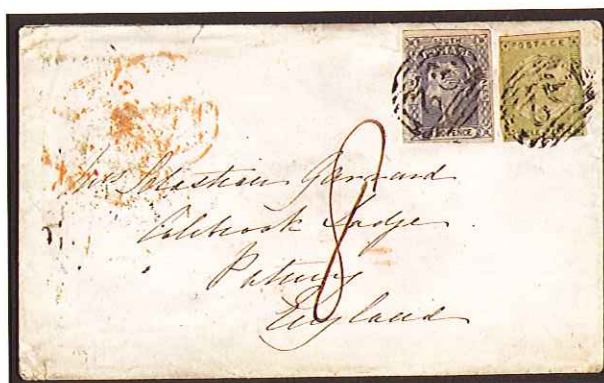 POSTAGE
POSTAGE
PENCE
Mrs Sebastian Garrard
Colebrook Lodge
Putney
England
8